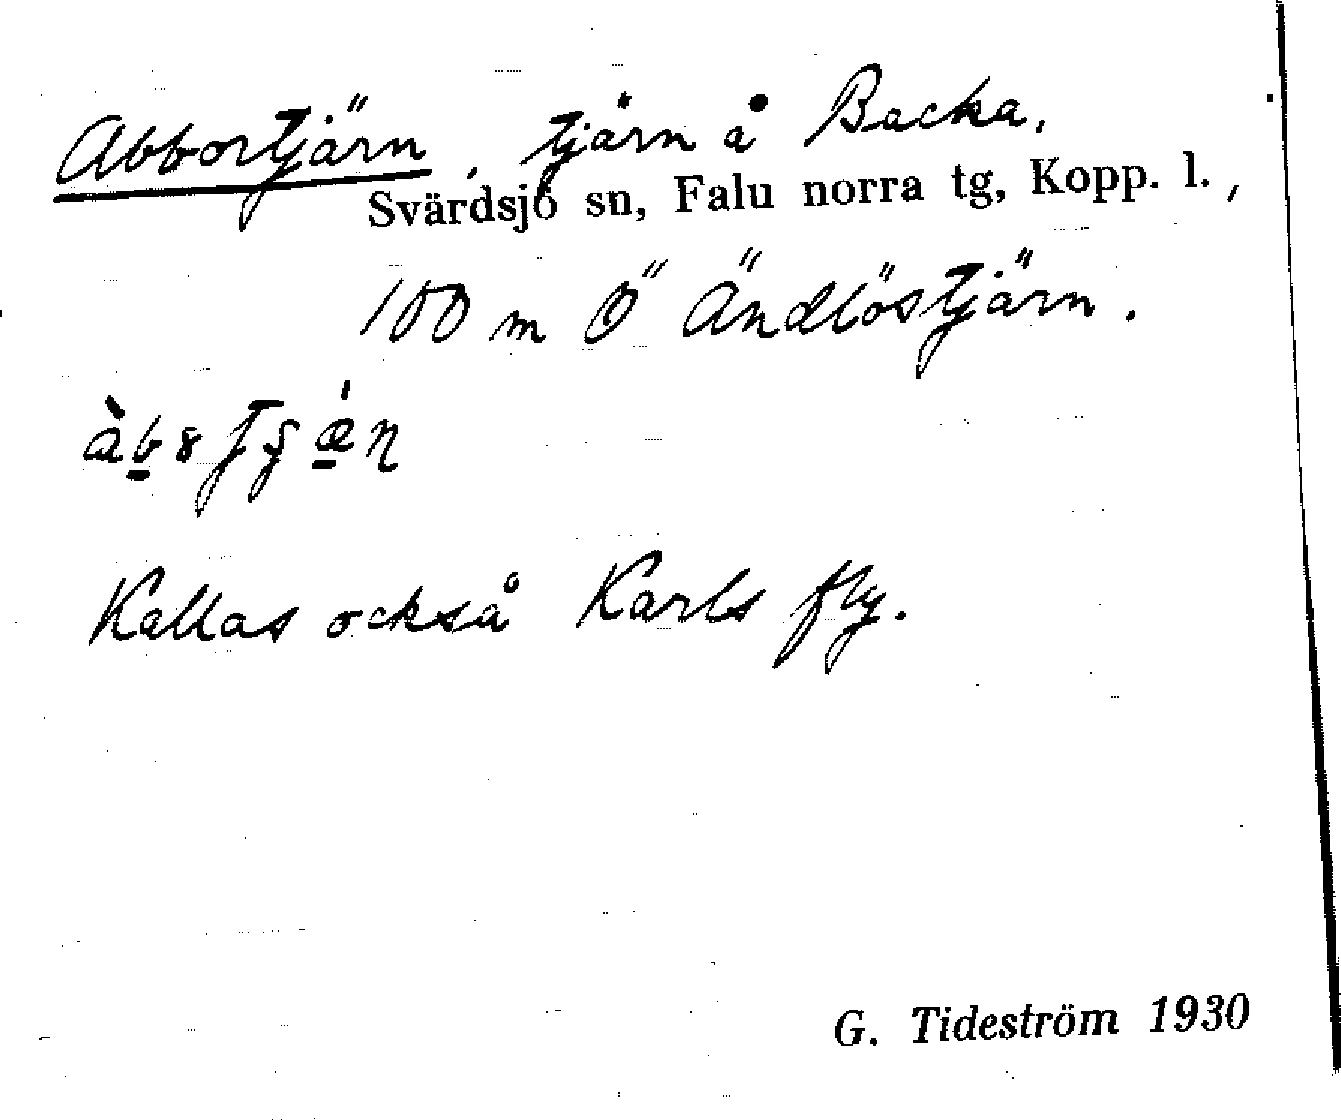 Abbortjärn, tjärn å Backa,
Svärdsjö sn, Falu norra tg, Kopp. l.,
100 m Ö Ändlöstjärn.
Kallas också Karls fly.
G. Tideström 1930